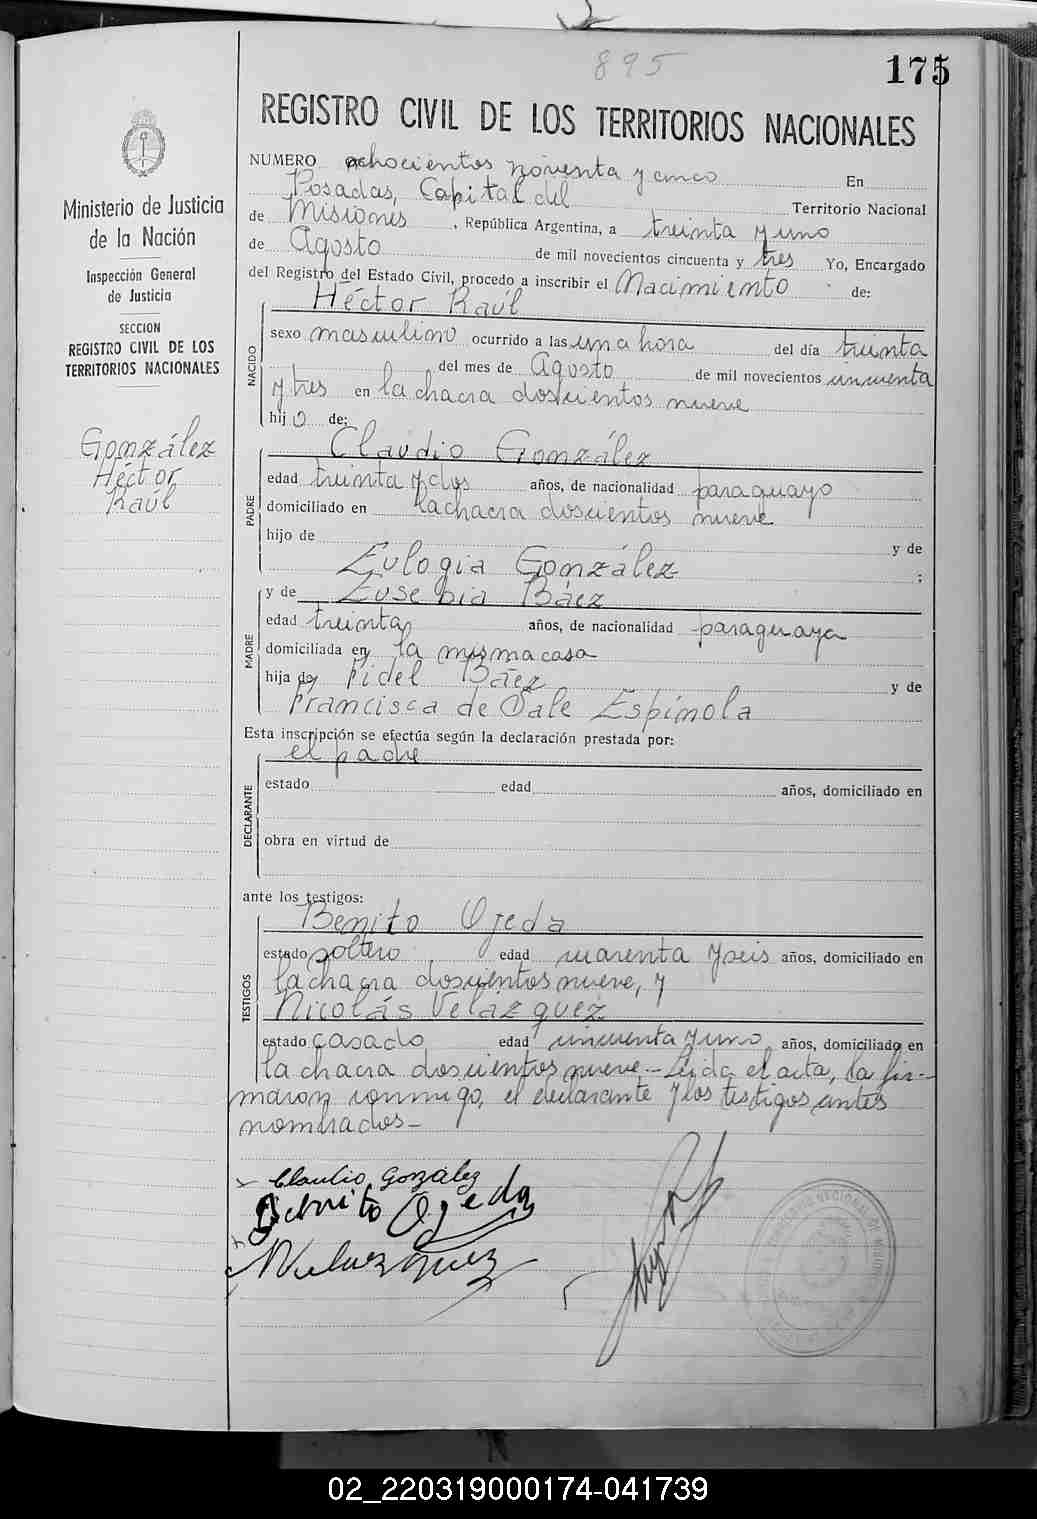 895
175
REGISTRO CIVIL DE LOS TERRITORIOS NACIONALES
Ministerio de Justicia
de la Nación
Inspección General
de Justicia
SECCION
REGISTRO CIVIL DE LOS
TERRITORIOS NACIONALES
González
Héctor
Raúl
NUMERO ochocientos noventa y cinco En
Posadas, Capital del Territorio Nacional
de Misiones, República Argentina, a treinta y uno
de Agosto de mil novecientos cincuenta y tres Yo, Encargado
del Registro del Estado Civil, procedo a inscribir el Nacimiento de:
Héctor Raúl
NACIDO
sexo masculino ocurrido a las una hora del día treinta
del mes de Agosto de mil novecientos cincuenta
y tres en la chacra doscientos nueve
hijo de:
Claudio González
PADRE
edad treinta y dos años, de nacionalidad paraguayo
domiciliado en la chacra doscientos nueve
hijo de y de
Eulogia González ;
y de Eusebia Báez
MADRE
edad treinta años, de nacionalidad paraguaya
domiciliada en la misma casa
hija de Fidel Báez y de
Francisca de Sale Espínola
Esta inscripción se efectúa según la declaración prestada por:
el padre
DECLARANTE
estado edad años, domiciliado en
obra en virtud de
ante los testigos:
Benito Ojeda
TESTIGOS
estado soltero edad cuarenta y seis años, domiciliado en
la chacra doscientos nueve, y
Nicolás Velázquez
estado casado edad cincuenta y uno años, domiciliado en
la chacra doscientos nueve.- Leída el acta, la fir-
maron conmigo, el declarante y los testigos antes
nombrados-
Claudio González
Benito Ojeda
NVelazquez
02_220319000174-041739